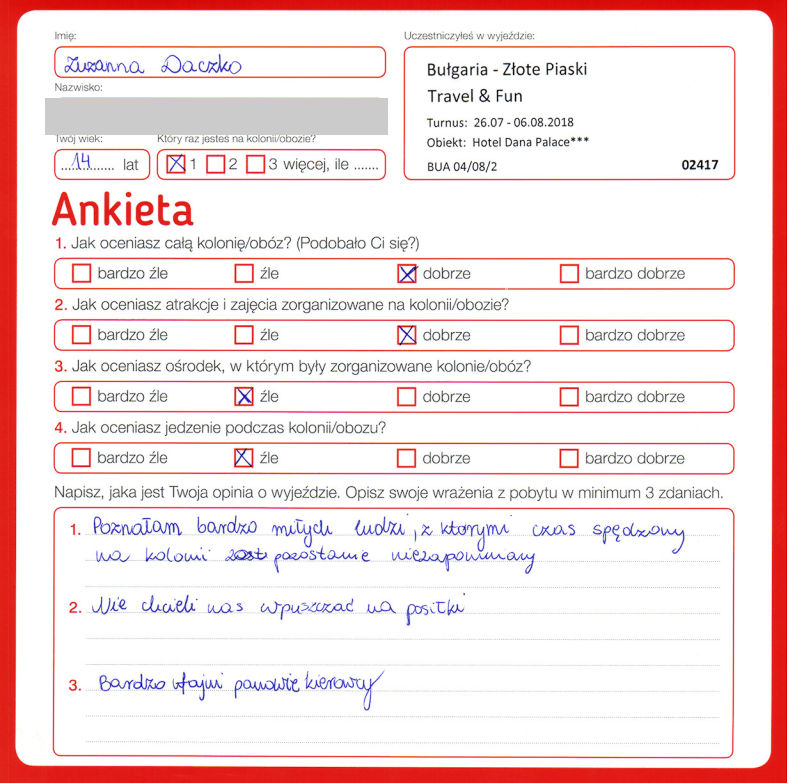 Imię:
Zuzanna Daczko
Nazwisko:
Twój wiek:
14 lat
Który raz jesteś na kolonii/obozie?
1 2 3 więcej, ile .......
Uczestniczyłeś w wyjeździe:
Bułgaria - Złote Piaski
Travel & Fun
Turnus: 26.07 - 06.08.2018
Obiekt: Hotel Dana Palace***
BUA 04/08/2 02417
Ankieta
1. Jak oceniasz całą kolonię/obóz? (Podobało Ci się?)
bardzo źle źle dobrze bardzo dobrze
2. Jak oceniasz atrakcje i zajęcia zorganizowane na kolonii/obozie?
bardzo źle źle dobrze bardzo dobrze
3. Jak oceniasz ośrodek, w którym były zorganizowane kolonie/obóz?
bardzo źle źle dobrze bardzo dobrze
4. Jak oceniasz jedzenie podczas kolonii/obozu?
bardzo źle źle dobrze bardzo dobrze
Napisz, jaka jest Twoja opinia o wyjeździe. Opisz swoje wrażenia z pobytu w minimum 3 zdaniach.
1. Poznałam bardzo miłych ludzi, z którymi czas spędzony
na kolonii pozostanie niezapomniany
2. Nie chcieli nas wpuszczać na posiłki
3. Bardzo fajni panowie kierowcy